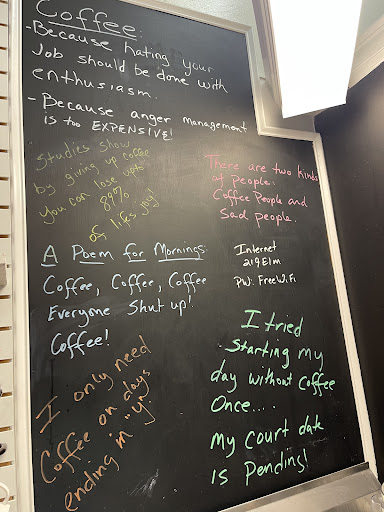 Coffee:
-Because hating your
Job should be done with
enthusiasm.
- Because anger management
is too EXPENSIVE!
Studies show
by giving up coffee
you can lose upto
89%
of life's joy!
There are two kinds
of people:
Coffee People and
Sad people.
A Poem for Mornings:
Coffee, Coffee, Coffee
Everyone Shut up!
Coffee!
Internet
219Elm
PW: FreeWiFi
I only need
Coffee on days
ending in "y"
I tried
starting my
day without coffee
Once....
My court date
is Pending!